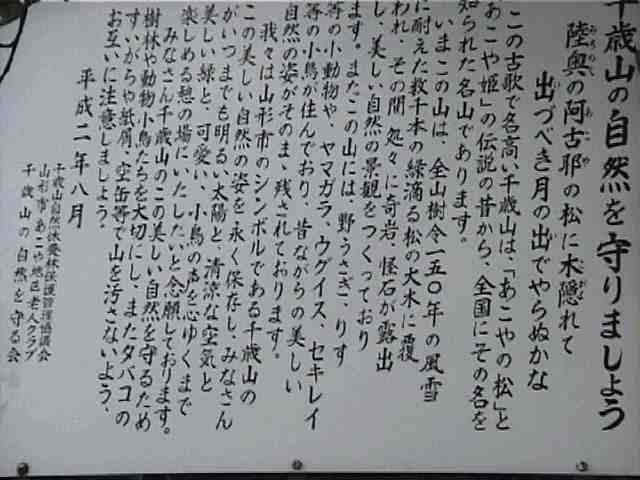 千歳山の自然を守りましょう
陸奥の阿古耶の松に木隠れて
出づべき月の出でやらぬかな
この古歌で名高い千歳山は、「あこやの松」と
「あこや姫」の伝説の昔から、全国にその名を
知られた名山であります。
いまこの山は、全山樹令一五〇年の風雪
に耐えた数千本の緑滴る松の大木に覆
われ、その間処々に奇岩、怪石が露出
し、美しい自然の景観をつくっており
ます。またこの山には、野うさぎ、りす
等の小動物や、ヤマガラ、ウグイス、セキレイ
等の小鳥が住んでおり、昔ながらの美しい
自然の姿がそのまゝ残されております。
我々は山形市のシンボルである千歳山の
この美しい自然の姿を永く保存し、みなさん
がいつまでも明るい太陽と、清涼な空気と
美しい緑と、可愛い、小鳥の声を心ゆくまで
楽しめる憩の場にいたしたいと念願しております。
みなさん千歳山のこの美しい自然を守るため
樹林や動物小鳥たちを大切にし、またタバコの
すいがらや紙屑、空缶等で山を汚さないよう、
お互いに注意しましょう。
平成二年八月
千歳山自然休養林保護管理協議会
山形市あこや地区老人クラブ
千歳山の自然を守る会